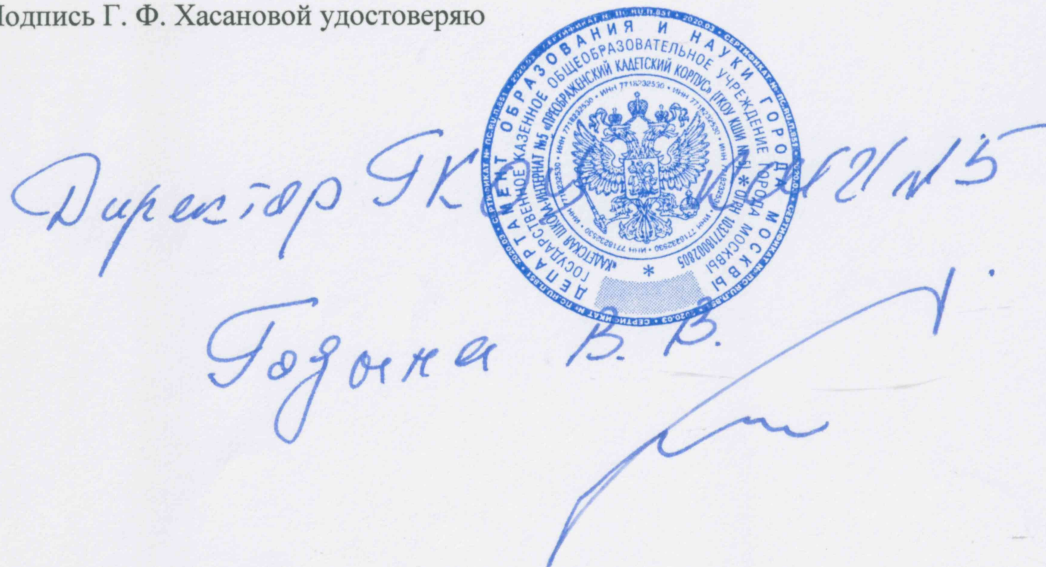 Подпись Г. Ф. Хасановой удостоверяю
ДЕПАРТАМЕНТ ОБРАЗОВАНИЯ И НАУКИ ГОРОДА МОСКВЫ
ГОСУДАРСТВЕННОЕ КАЗЕННОЕ ОБЩЕОБРАЗОВАТЕЛЬНОЕ УЧРЕЖДЕНИЕ ГОРОДА МОСКВЫ
«КАДЕТСКАЯ ШКОЛА-ИНТЕРНАТ №5 «ПРЕОБРАЖЕНСКИЙ КАДЕТСКИЙ КОРПУС» (ГКОУ КШИ №5) * ОГРН 1037718002805
ИНН 7718232530
Директор ГКОУ КШИ №5
Годына В. В.